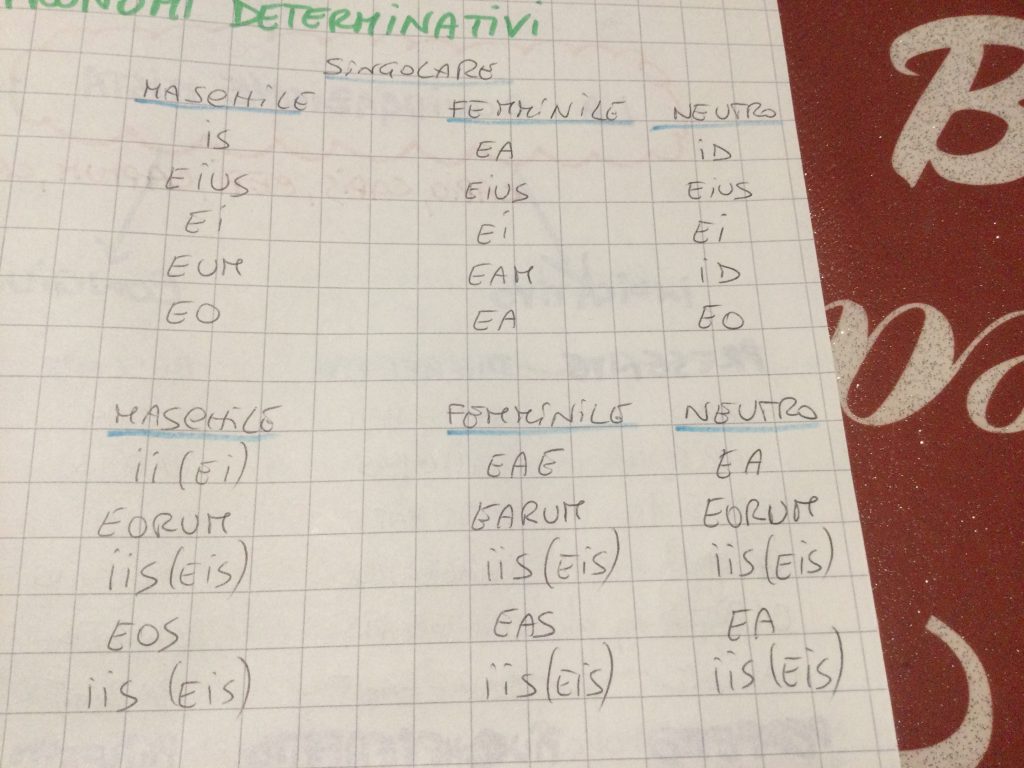 PRONOMI DETERMINATIVI
SINGOLARE
MASCHILE FEMMINILE NEUTRO
iS EA iD
EiUS EiUS EiUS
Ei Ei Ei
EUM EAM iD
EO EA EO
MASCHILE FEMMINILE NEUTRO
ii (Ei) EAE EA
EORUM EARUM EORUM
iiS (EiS) iiS (EiS) iiS (EiS)
EOS EAS EA
iiS (EiS) iiS (EiS) iiS (EiS)